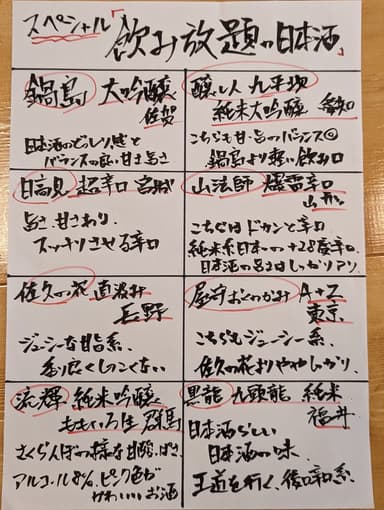 スペシャル「飲み放題の日本酒」
鍋島 大吟醸
佐賀
日本酒のどしり感と
バランスの良い甘さ旨さ
醸し人 九平次
純米大吟醸 愛知
こちらも甘・旨のバランス◎
鍋島より軽い飲み口
日高見 超辛口 宮城
旨さ、甘さあり、
スッキリさせる辛口
山法師 爆雷辛口
山形
こちらはドカンと辛口
純米系日本一の+28度辛口、
日本酒の旨さはしっかりアリ、
佐久の花 直汲み
長野
ジューシーな甘旨系、
香り広くしつこくない
屋守 おくのかみ
東京
こちらもジューシー系、
佐久の花よりややしっかり、
流輝 純米吟醸
ももいろ生 群馬
さくらんぼの様な甘酸っぱさ
アルコール8%、ピンク色が
かわいいお酒
黒龍 九頭龍 純米
福井
日本酒らしい
日本酒の味、
王道を行く、後口辛系、